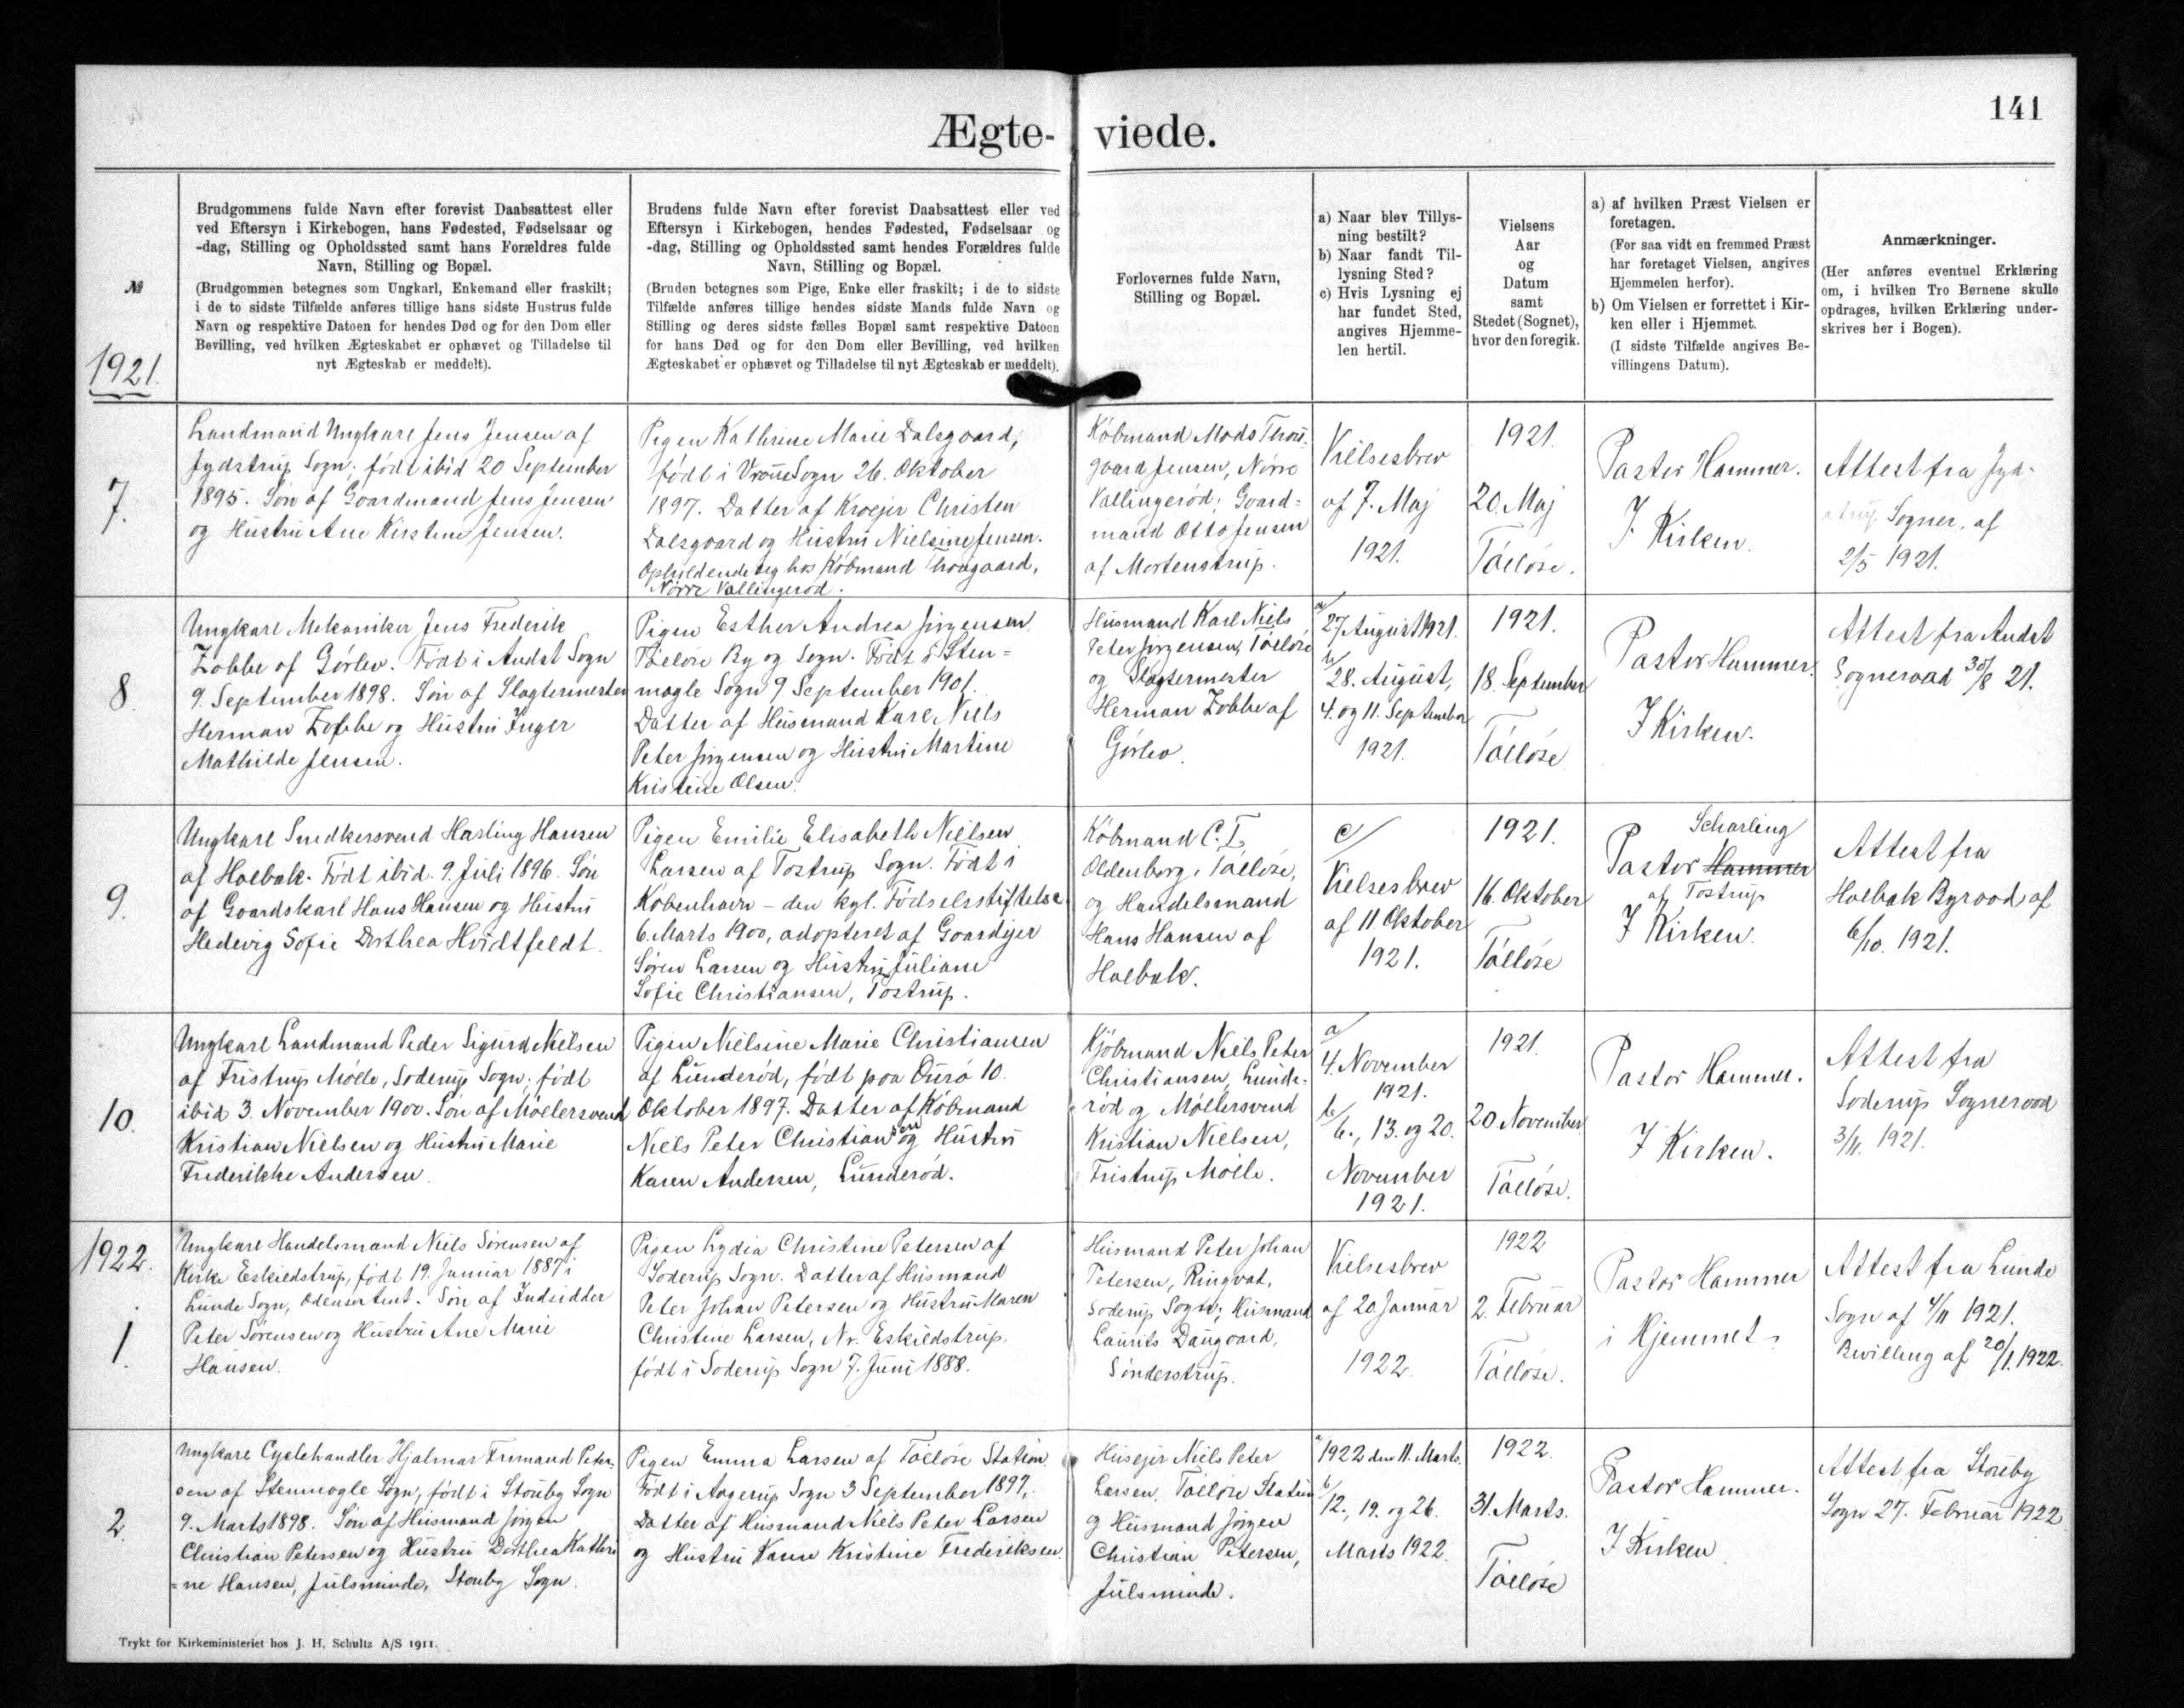 141
Ægte- viede.
№
1921.
Brudgommens fulde Navn efter forevist Daabsattest eller
ved Eftersyn i Kirkebogen, hans Fødested, Fødselsaar og
-dag, Stilling og Opholdssted samt hans Forældres fulde
Navn, Stilling og Bopæl.
(Brudgommen betegnes som Ungkarl, Enkemand eller fraskilt;
i de to sidste Tilfælde anføres tillige hans sidste Hustrus fulde
Navn og respektive Datoen for hendes Død og for den Dom eller
Bevilling, ved hvilken Ægteskabet er ophævet og Tilladelse til
nyt Ægteskab er meddelt).
Brudens fulde Navn efter forevist Daabsattest eller ved
Eftersyn i Kirkebogen, hendes Fødested, Fødselsaar og
-dag, Stilling og Opholdssted samt hendes Forældres fulde
Navn, Stilling og Bopæl.
(Bruden betegnes som Pige, Enke eller fraskilt; i de to sidste
Tilfælde anføres tillige hendes sidste Mands fulde Navn og
Stilling og deres sidste fælles Bopæl samt respektive Datoen
for hans Død og for den Dom eller Bevilling, ved hvilken
Ægteskabet er ophævet og Tilladelse til nyt Ægteskab er meddelt).
Forlovernes fulde Navn,
Stilling og Bopæl.
a) Naar blev Tillys-
ning bestilt?
b) Naar fandt Til-
lysning Sted?
c) Hvis Lysning ej
har fundet Sted,
angives Hjemme-
len hertil.
Vielsens
Aar
og
Datum
samt
Stedet (Sognet),
hvor den foregik.
a) af hvilken Præst Vielsen er
foretagen.
(For saa vidt en fremmed Præst
har foretaget Vielsen, angives
Hjemmelen herfor).
b) Om Vielsen er forrettet i Kir-
ken eller i Hjemmet.
(I sidste Tilfælde angives Be-
villingens Datum).
Anmærkninger.
(Her anføres eventuel Erklæring
om, i hvilken Tro Børnene skulle
opdrages, hvilken Erklæring under-
skrives her i Bogen).
7.
Landmand Ungkarl Jens Jensen af
Jydstrup Sogn; født ibid 20 September
1895. Søn af Gaardmand Jens Jensen
og Hustru Ane Kirstine Jensen.
Pigen Kathrine Marie Dalsgaard,
født i Sogn 26. Oktober
1897. Datter af Kroejer Christen
Dalsgaard og Hustru Nielsine Jensen.
Opholdende sig hos Købmand Thougaard,
Nørre Vallingerød.
Købmand Mads Thou-
gaard Jensen, Nørre
Vallingerød; Gaard=
mand Otto Jensen
af Mortenstrup.
Vielsesbrev
af 7. Maj
1921.
1921.
20. Maj
Tølløse.
Pastor Hammer.
I Kirken.
Attest fra Jyd-
strup Sogner. af
2/5 1921.
8.
Ungkarl Mekaniker Jens Frederik
Zobbe af Gørlev. Født i Andst Sogn
9. September 1898. Søn af Slagtermester
Herman Zobbe og Hustru Inger
Mathilde Jensen.
Pigen Esther Andrea Jørgensen
Tølløse By og Sogn. Født i Sten=
magle Sogn 9 September 1901.
Datter af Husmand Karl Niels
Peter Jørgensen og Hustru Martine
Kristine Olsen.
Husmand Karl Niels
Peter Jørgensen, Tølløse
og Slagtermester
Herman Zobbe af
Gørlev.
a/
27 August 1921.
b/
28. August,
4. og 11. September
1921.
1921.
18. September
Tølløse
Pastor Hammer.
I Kirken.
Attest fra Andst
Sogneraad 30/8 21.
9.
Ungkarl Snedkersvend Harling Hansen
af Holbæk. Født ibid. 9. Juli 1896. Søn
af Gaardskarl Hans Hansen og Hustru
Hedevig Sofie Dorthea Hvidtfeldt.
Pigen Emilie Elisabeth Nielsen
Larsen af Tostrup Sogn. Født i
København - den kgl. Fødselsstiftelse
6. Marts 1900, adopteret af Gaardejer
Søren Larsen og Hustru Juliane
Sofie Christiansen, Tostrup.
Købmand C. I.
Oldenborg, Tølløse,
og Handelsmand
Hans Hansen af
Holbæk.
c/
Vielsesbrev
af 11 Oktober
1921.
1921.
16. Oktober
Tølløse
Scharling
Pastor Hammer
af Tostrup
I Kirken.
Attest fra
Holbæk Byraad af
6/10. 1921.
10.
Ungkarl Landmand Peder Sigurd Nielsen
af Tristrup Mølle, Soderup Sogn; født
ibid 3. November 1900. Søn af Møllersvend
Kristian Nielsen og Hustru Marie
Frederikke Andersen.
Pigen Nielsine Marie Christiansen
af Lunderød, født paa Ourø 10.
Oktober 1897. Datter af Købmand
Niels Peter Christiansen og Hustru
Karen Andersen, Lunderød.
Kjøbmand Niels Peter
Christiansen, Lunde-
rød og Møllersvend
Kristian Nielsen,
Tristrup Mølle.
a/
4. November
1921.
b/
6., 13. og 20.
November
1921.
1921.
20 November
Tølløse.
Pastor Hammer.
I Kirken.
Attest fra
Soderup Sogneraad
3/11. 1921.
1922.
1.
Ungkarl Handelsmand Niels Sørensen af
Kirke Eskildstrup, født 19. Januar 1887 i
Lunde Sogn, Odense Amt. Søn af Indsidder
Peter Sørensen og Hustru Ane Marie
Hansen.
Pigen Lydia Christine Petersen af
Soderup Sogn. Datter af Husmand
Peter Johan Petersen og Hustru Maren
Christine Larsen, Nr. Eskildstrup.
født i Soderup Sogn 7. Juni 1888.
Husmand Peter Johan
Petersen, Ringvat,
Soderup Sogn; Husmand
Laurits Daugaard,
Sønderstrup.
Vielsesbrev
af 20. Januar
1922.
1922
2. Februar
Tølløse.
Pastor Hammer
i Hjemmet.
Attest fra Lunde
Sogn af 4/11 1921.
Bevilling af 20/1. 1922.
2.
Ungkarl Cyclehandler Hjalmar Frimand Peter-
sen af Stenmagle Sogn, født i Stouby Sogn
9. Marts 1898. Søn af Husmand Jørgen
Christian Petersen og Hustru Dorthea Kathri
=ne Hansen, Julsminde, Stouby Sogn.
Pigen Emma Larsen af Tølløse Station.
Født i Aagerup Sogn 3 September 1897,
Datter af Husmand Niels Peter Larsen
og Hustru Karen Kristine Frederiksen.
Husejer Niels Peter
Larsen, Tølløse Station
og Husmand Jørgen
Christian Petersen,
Julsminde.
a/ 1922 den 11. Marts.
b/
12., 19. og 26.
Marts 1922.
1922.
31. Marts.
Tølløse
Pastor Hammer.
I Kirken
Attest fra Stouby
Sogn 27. Februar 1922
Trykt for Kirkeministeriet hos J. H. Schultz A/S 1911.